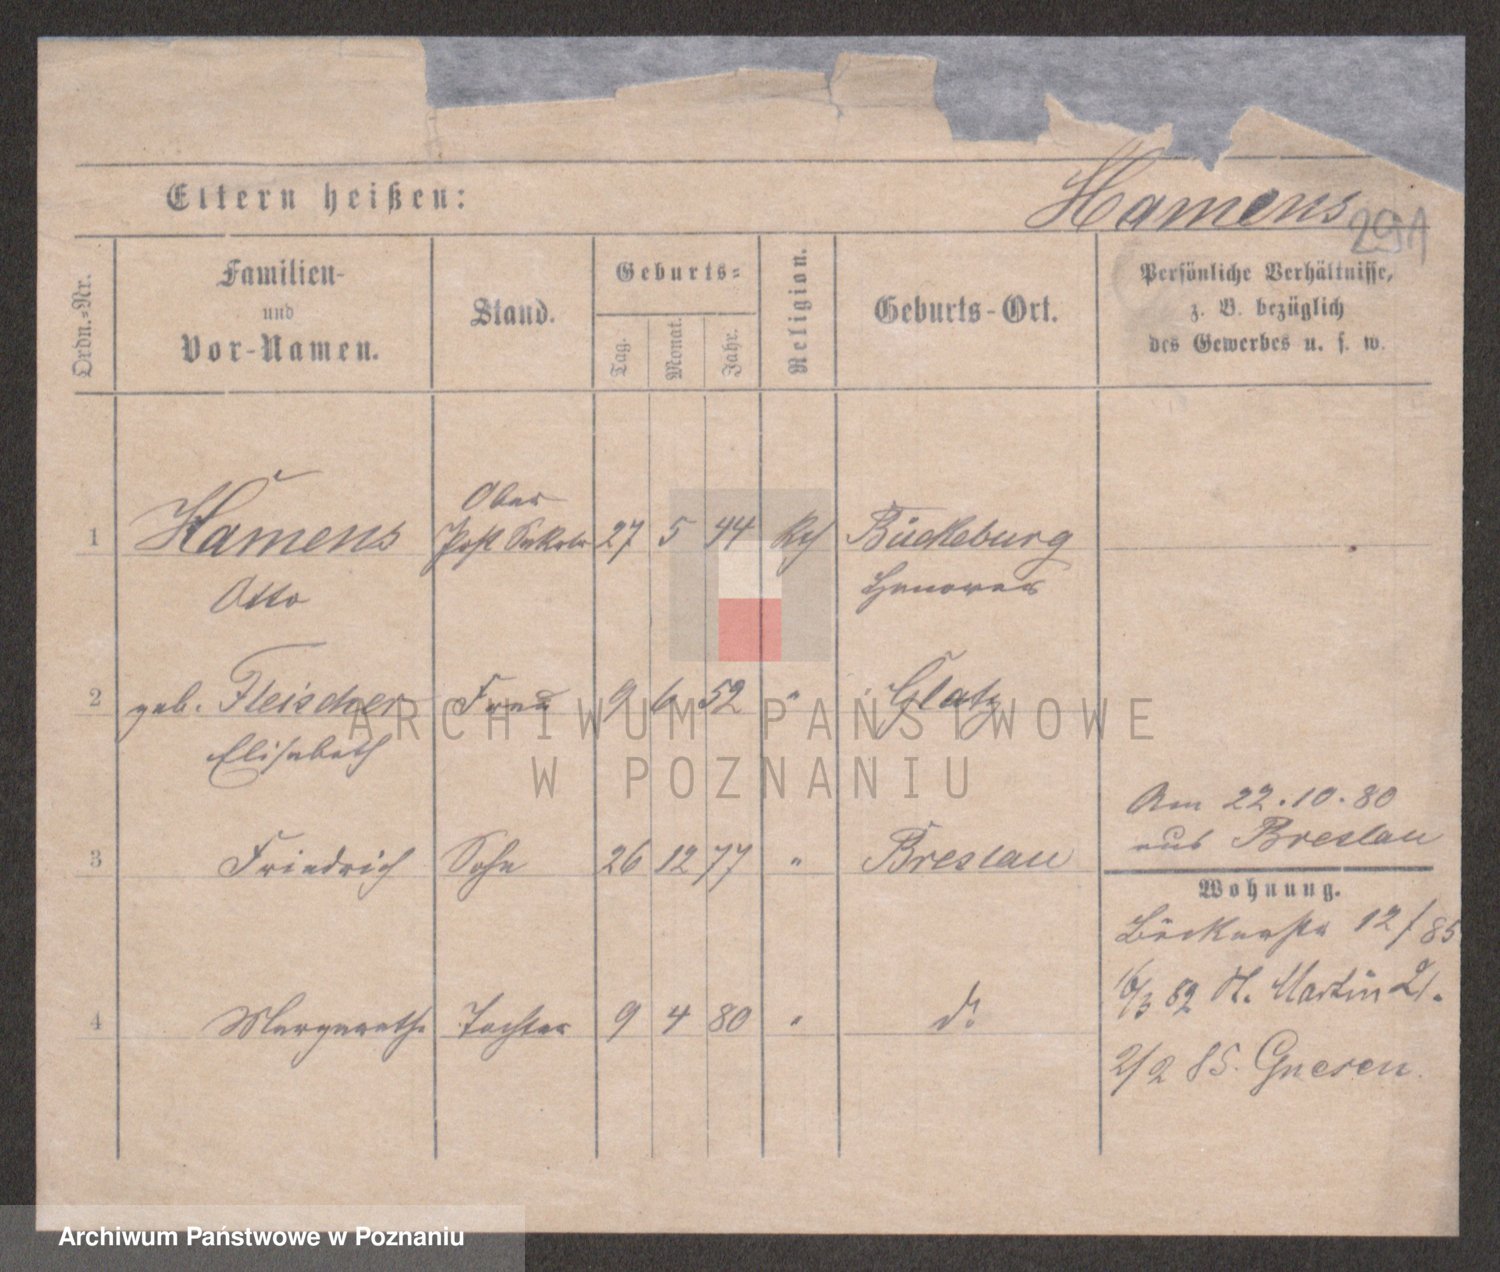 Eltern heißen:
Hamens
291
Ordn.=Nr.
Familien-
und
Vor-Namen.
Stand.
Geburts=
Tag.
Monat.
Jahr.
Religion.
Geburts-Ort.
Persönliche Verhältnisse,
z. B. bezüglich
des Gewerbes u. s. w.
1 Hamens Ober Post Sekretr 27 5 44 Bückeburg
Otto Hanover
2 geb. Fleischer Frau 9 6 52 " Glatz
Elisabeth
Am 22.10.80
aus Breslau
3 Friedrich Sohn 26 12 77 " Breslau
Wohnung.
Bäckerstr 12/85
4 Margarethe Tochter 9 4 80 " do
82 St. Martin 21.
2/2 85. Gnesen.
ARCHIWUM PAŃSTWOWE
W POZNANIU
Archiwum Państwowe w Poznaniu